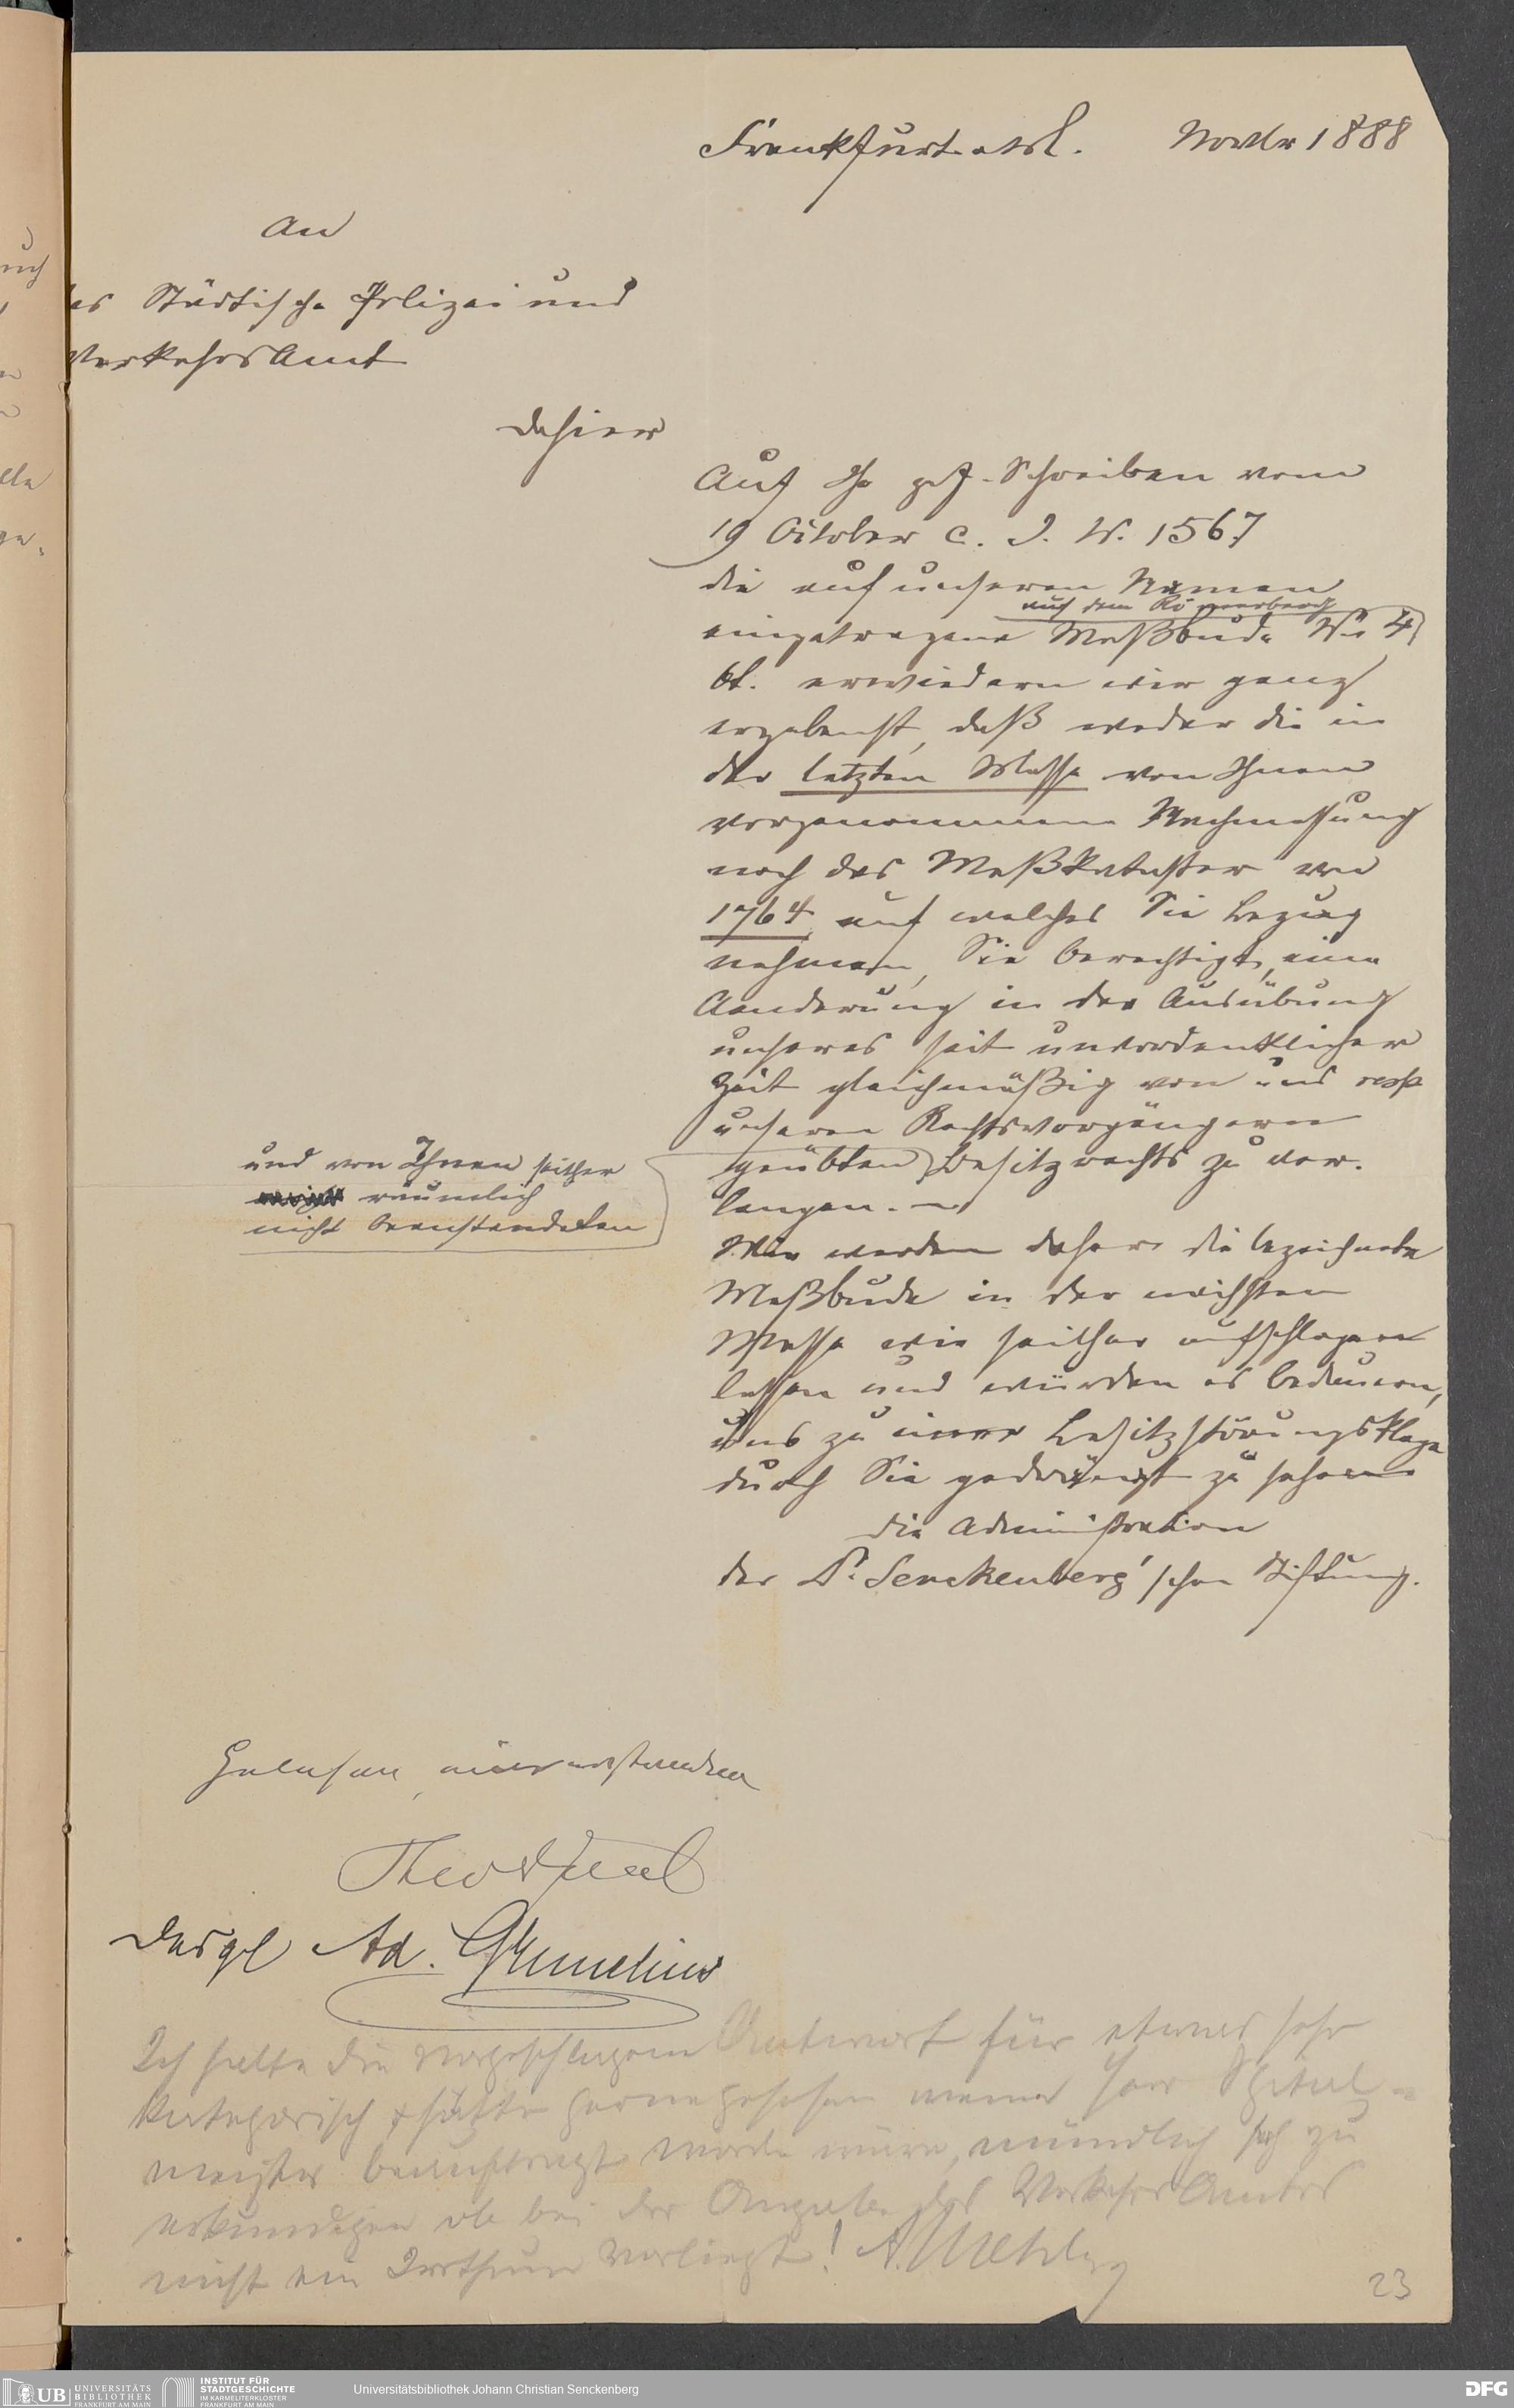 Frankfurt a/M. Novbr 1888
An
das Städtische Polizei und
Verkehrs Amt
dahier
Auf Ihr gef. Schreiben vom
19 October c. J. N. 1567
die auf unseren Namen
auf dem Römerberg
eingetragene Meßbude No 4
bt. erwiedern wir ganz
ergebenst, daß weder die in
der letzten Messe von Ihnen
vorgenommene Nachmessung
noch das Meßkataster von
1764, auf welches Sie Bezug
nehmen, Sie berechtigt, eine
Aenderung in der Ausübung
unseres seit unvordenklicher
Zeit gleichmäßig von uns resp
unseren Rechtsvorgängern
geübten Besitzrechts zu ver-
langen. —
und von Ihnen seither
räumlich
nicht beanstandeten
Wir werden daher die bezeichnete
Meßbude in der nächsten
Messe wie seither aufschlagen
lassen und würden es bedauern,
uns zu einer Besitzstörungsklage
durch Sie gedrängt zu sehen
die Administration
der Dr. Senckenberg'schen Stiftung.
Gelesen, einverstanden
Theod
Desgl Ad. Gymnelius
Ich halte die vorgeschlagene Antwort für etwas sehr
kategorisch & hätte gerne gesehen wenn Herr Spital-
meister beauftragt worden wäre, mündlich sich zu
erkundigen ob bei der Angabe des Verkehrs Amtes
nicht ein Irrthum vorliegt!
23
UB UNIVERSITÄTS
BIBLIOTHEK
FRANKFURT AM MAIN
INSTITUT FÜR
STADTGESCHICHTE
IM KARMELITERKLOSTER
FRANKFURT AM MAIN
Universitätsbibliothek Johann Christian Senckenberg
DFG